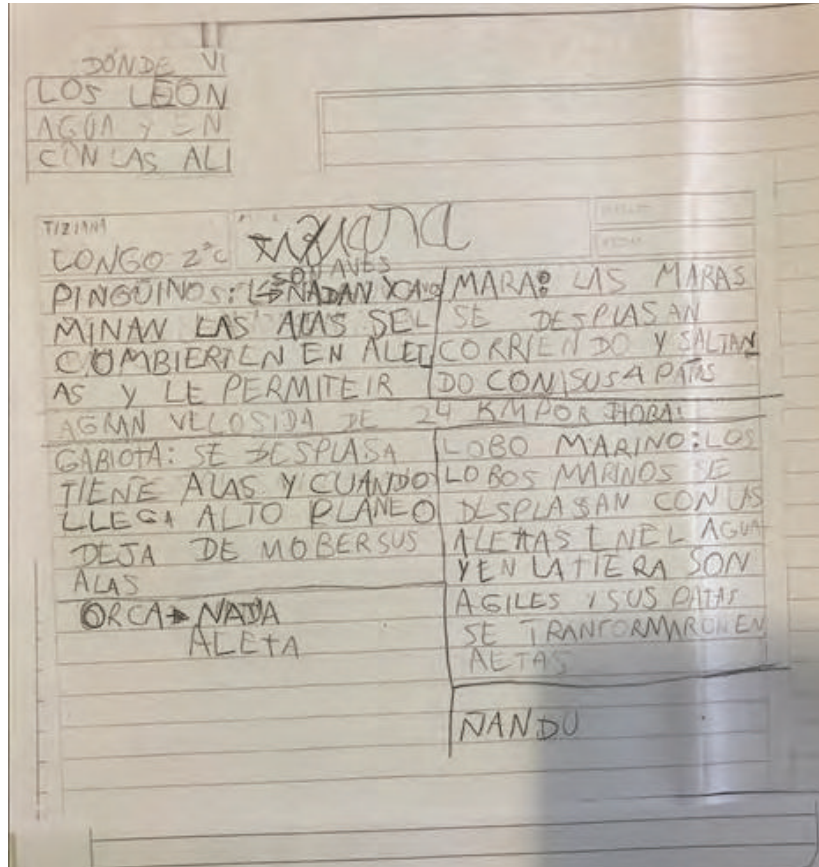 DÓNDE VI
LOS LEON
AGUA Y EN
CON LAS ALI
TIZIANA
LONGO 2°C
Tiziana
SON AVES
PINGÜINOS: NADAN Y CA
MINAN LAS ALAS SEL
COMBIERTEN EN ALET
AS Y LE PERMITE IR
AGRAN VELOSIDA DE 24 KM POR HORA.
GABIOTA: SE DESPLASA
TIENE ALAS Y CUANDO
LLEGA ALTO PLANEO
DEJA DE MOBER SUS
ALAS
ORCA NADA
ALETA
MARA: LAS MARAS
SE DESPLASAN
CORRIENDO Y SALTAN
DO CON SUS 4 PATAS
LOBO MARINO: LOS
LOBOS MARINOS SE
DESPLASAN CON LAS
ALETAS ENEL AGUA
Y EN LA TIERA SON
AGILES Y SUS PATAS
SE TRANFORMARON EN
AETAS
ÑANDU